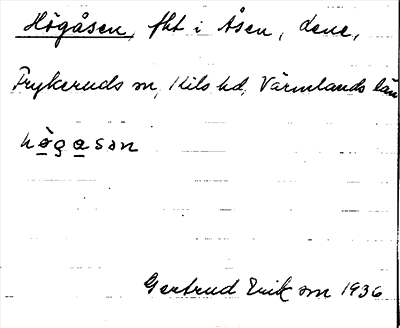 Högåsen, fht i Åsen, dene,
Frykeruds sn, Kils hd, Värmlands län
högasən
Gertrud Erikson 1936